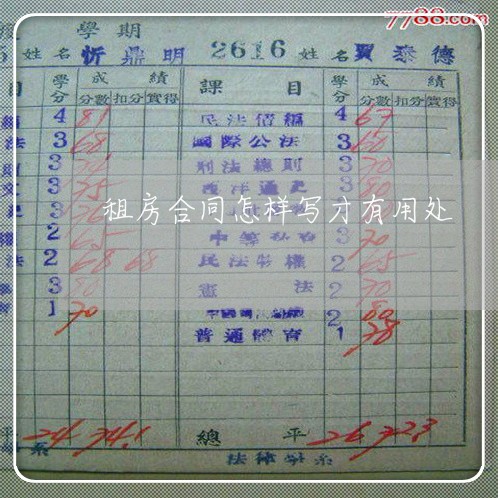 7788.com
學期
姓名 忻鼎明 2616 姓名 賈泰德
目 學分 成績 課目 學分 成績
分數 扣分 實得 分數 扣分 實得
4 81 民法債編 4 67
法 3 68 國際公法 3 60
3 刑法總則 3 70
3 75 西洋通史 3 80
租房合同怎样写才有用处
2 65 3 70
法 2 68 68 民法物權 2 65
3 80 憲法 2 70
1 70 2 80
普通體育 1 78
平 24 74.1 總平 26 72.3
系 法律學系